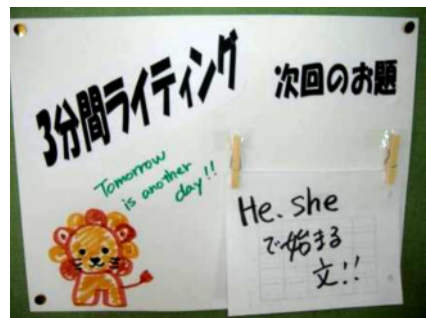 3分間ライティング
次回のお題
Tomorrow
is another
day!!
He. she
で始まる
文!!